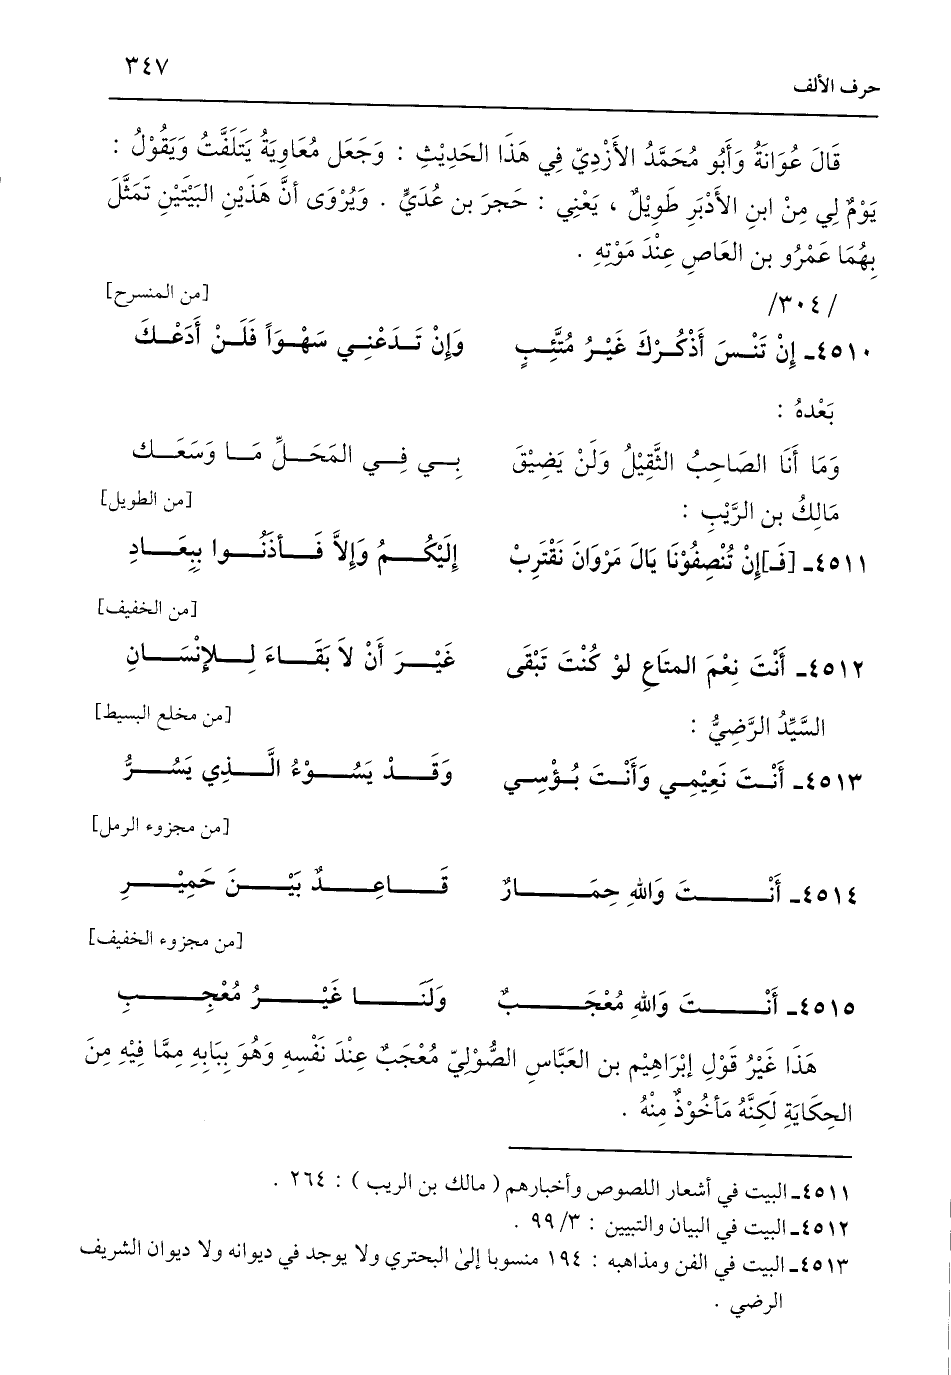 حرف الألف ٣٤٧
قَالَ عُوَانَةُ وَأَبُو مُحَمَّدُ الأَزْدِيّ فِي هَذَا الحَدِيْثِ : وَجَعَل مُعَاوِيَةُ يَتَلَفَّتُ وَيَقُوْلُ :
يَوْمٌ لِي مِنْ ابنِ الأَدْبَرِ طَوِيْلٌ ، يَعْنِي : حَجرَ بن عُدَيٍّ . وَيُرْوَى أنَّ هَذَيْنِ البَيْتَيْنِ تَمَثَّلَ
بِهُمَا عَمْرُو بن العَاصِ عِنْدَ مَوْتِهِ .
/٣٠٤/ [من المنسرح]
٤٥١٠ـ إِنْ تَنْسَ أَذْكُرْكَ غَيْرُ مُتَّئِبٍ وَإِنْ تَدَعْنِي سَهْوَاً فَلَنْ أَدَعْكَ
بَعْدهُ :
وَمَا أَنَا الصَاحِبُ الثَّقِيْلُ وَلَنْ يَضِيْقَ بِي فِي المَحَلِّ مَا وَسَعَك
مَالِكُ بن الرَّيْبِ : [من الطويل]
٤٥١١ـ [فَـ]إِنْ تُنْصِفُوْنَا يَالَ مَرْوَانَ نَقْتَرِبْ إِلَيْكُمُ وَإِلاَّ فَأذَنُوا بِبِعَادِ
[من الخفيف]
٤٥١٢ـ أَنْتَ نِعْمَ المتَاعِ لوْ كُنْتَ تَبْقَى غَيْرَ أَنْ لاَ بَقَاءَ لِلإنْسَانِ
السَّيِّدُ الرَّضِيُّ : [من مخلع البسيط]
٤٥١٣ـ أَنْتَ نَعِيْمِي وَأَنْتَ بُؤْسِي وَقَدْ يَسُوْءُ الَّذِي يَسُرُّ
[من مجزوء الرمل]
٤٥١٤ـ أَنْتَ وَاللهِ حِمَارٌ قَاعِدٌ بَيْنَ حَمِيْرِ
[من مجزوء الخفيف]
٤٥١٥ـ أَنْتَ وَاللهِ مُعْجَبٌ وَلَنَا غَيْرُ مُعْجِبِ
هَذَا غَيْرُ قَوْلِ إِبْرَاهِيْم بن العَبَّاسِ الصُّوْلِيّ مُعْجَبٌ عِنْدَ نَفْسِهِ وَهُوَ بِبَابِهِ مِمَّا فِيْهِ مِنَ
الحِكَايَةِ لَكِنَّهُ مَأخُوْذٌ مِنْهُ .
٤٥١١ـ البيت في أشعار اللصوص وأخبارهم ( مالك بن الريب ) : ٢٦٤ .
٤٥١٢ـ البيت في البيان والتبيين : ٩٩/٣ .
٤٥١٣ـ البيت في الفن ومذاهبه : ١٩٤ منسوبا إلىٰ البحتري ولا يوجد في ديوانه ولا ديوان الشريف
الرضي .